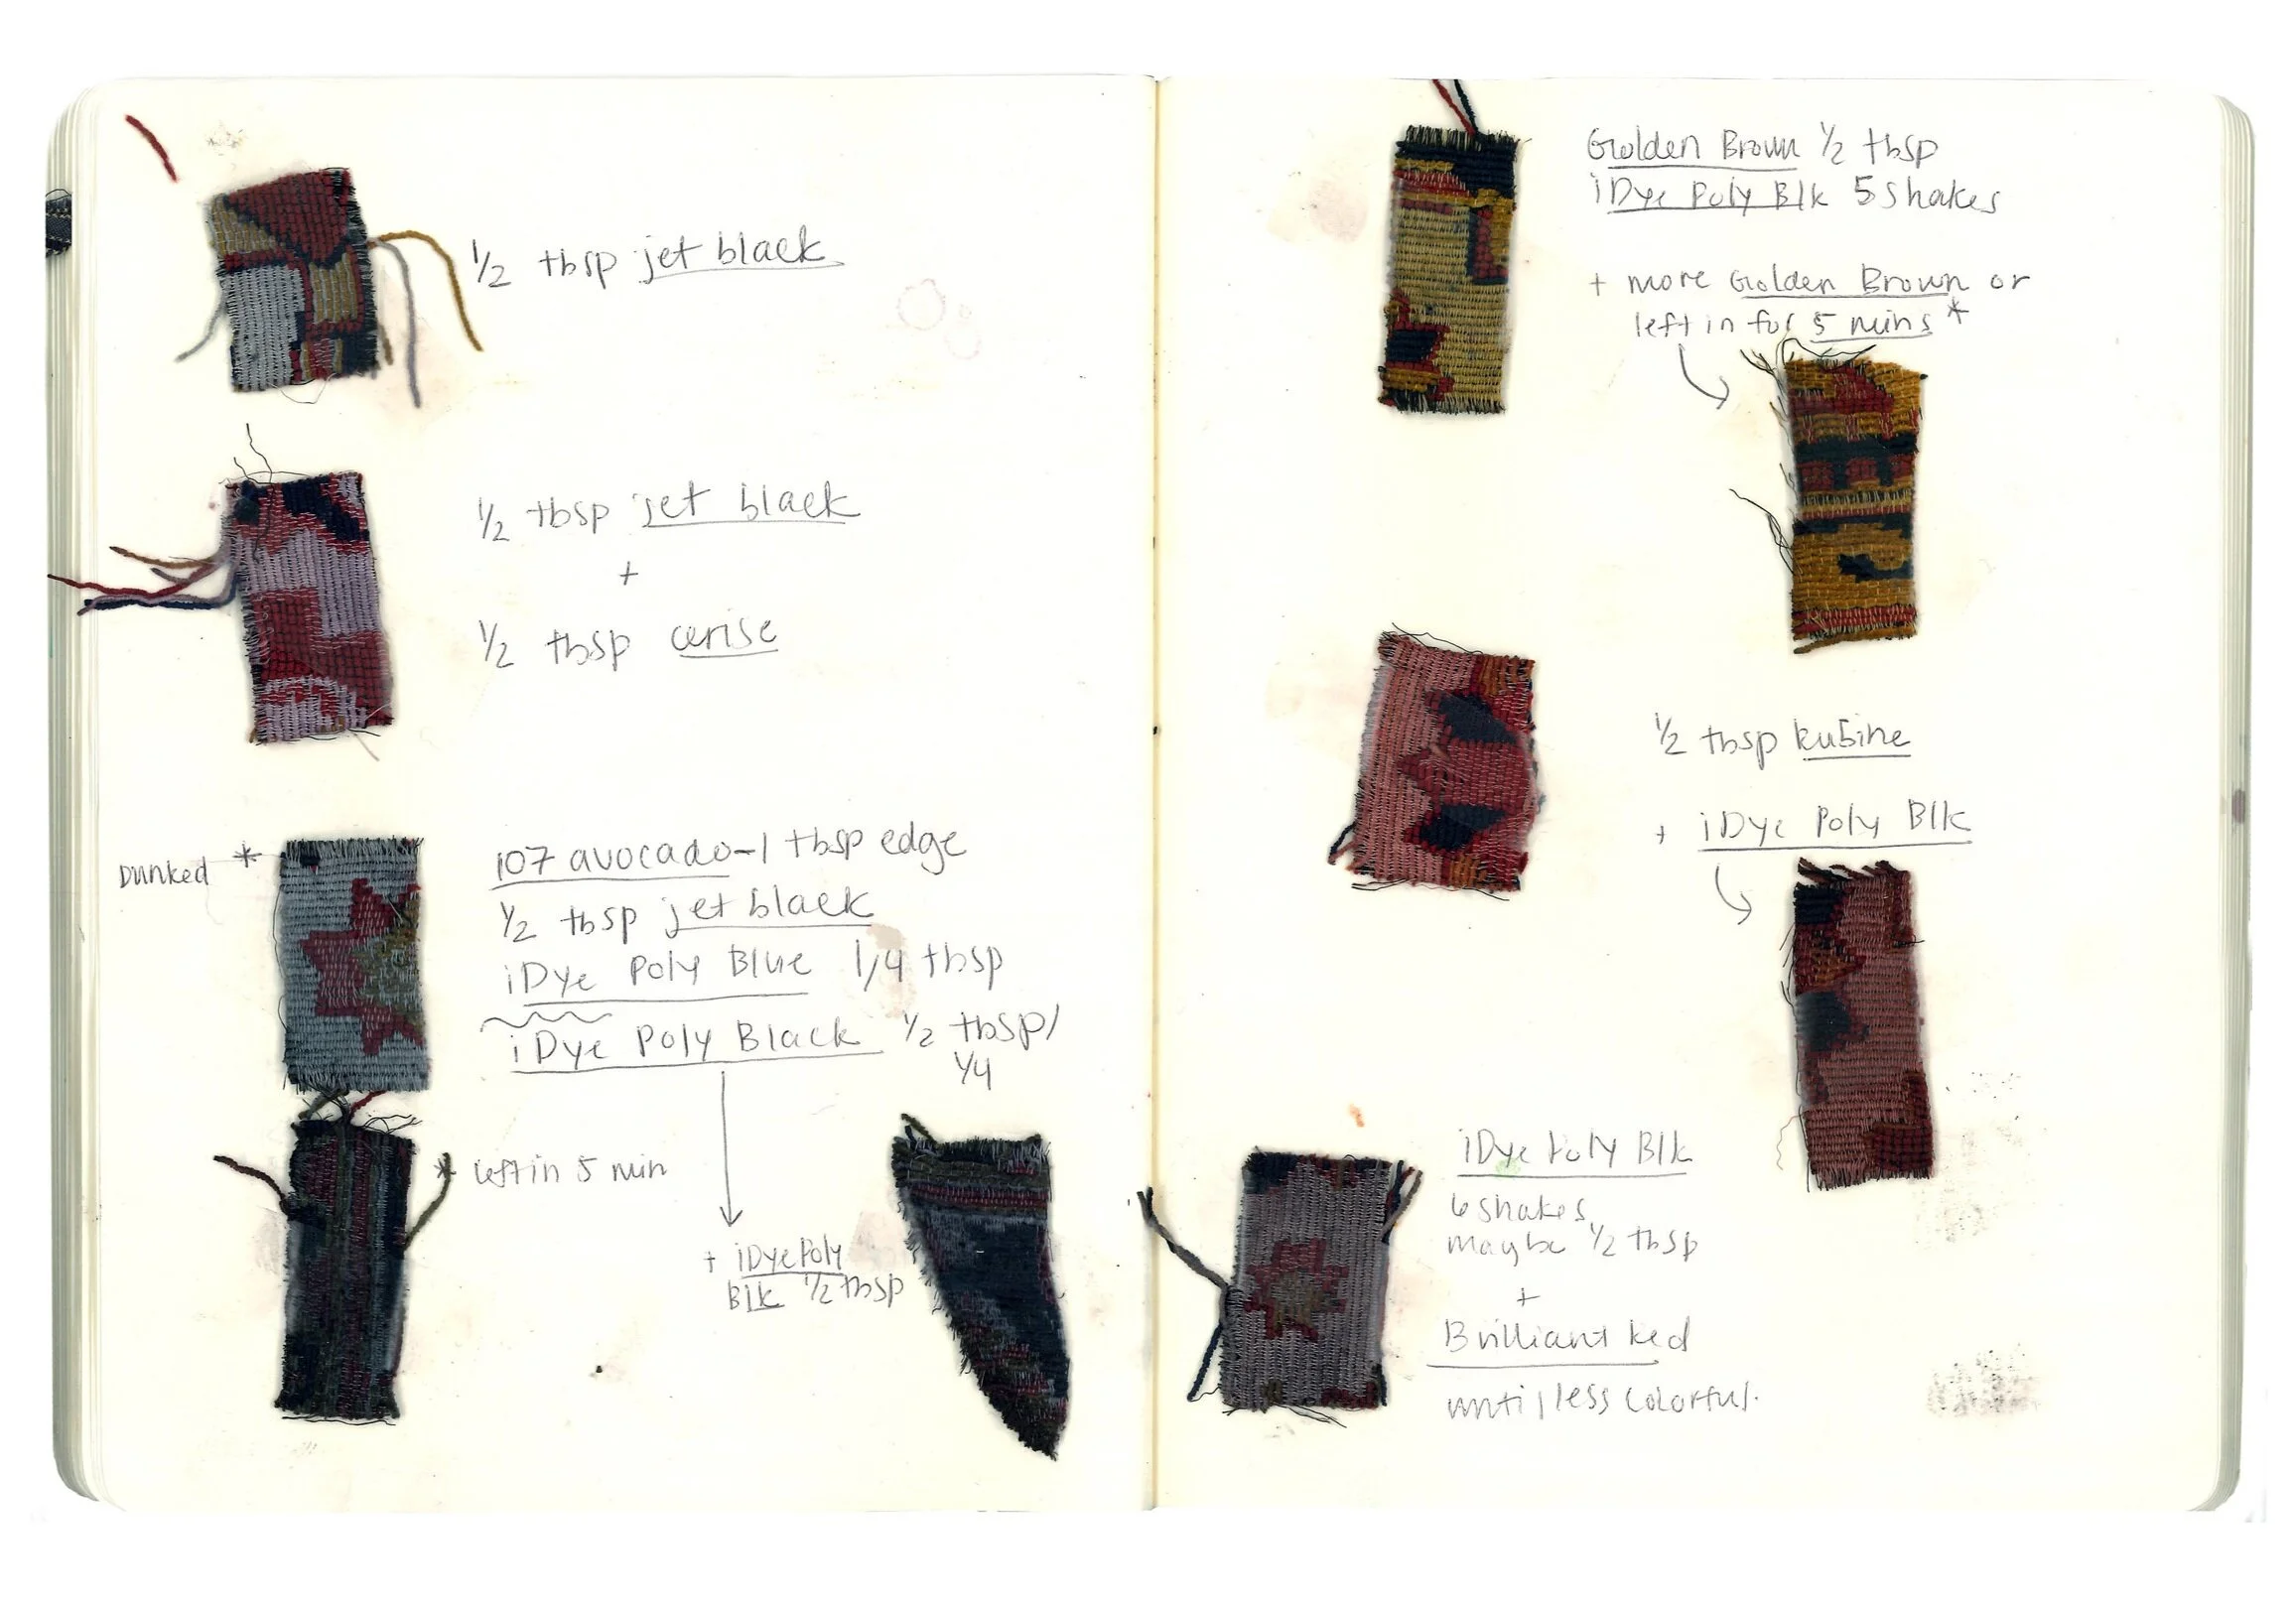 1/2 tbsp jet black
1/2 tbsp jet black
+
1/2 tbsp cerise
Dunked *
107 avocado-1 tbsp edge
1/2 tbsp jet black
iDye Poly Blue 1/4 tbsp
iDye Poly Black 1/2 tbsp/
1/4
* left in 5 min
+ iDye Poly
Blk 1/2 tbsp
Golden Brown 1/2 tbsp
iDye Poly Blk 5 shakes
+ more Golden Brown or
left in for 5 mins *
1/2 tbsp Rubine
+ iDye Poly Blk
iDye Poly Blk
6 shakes
maybe 1/2 tbsp
+
Brilliant Red
until less colorful.